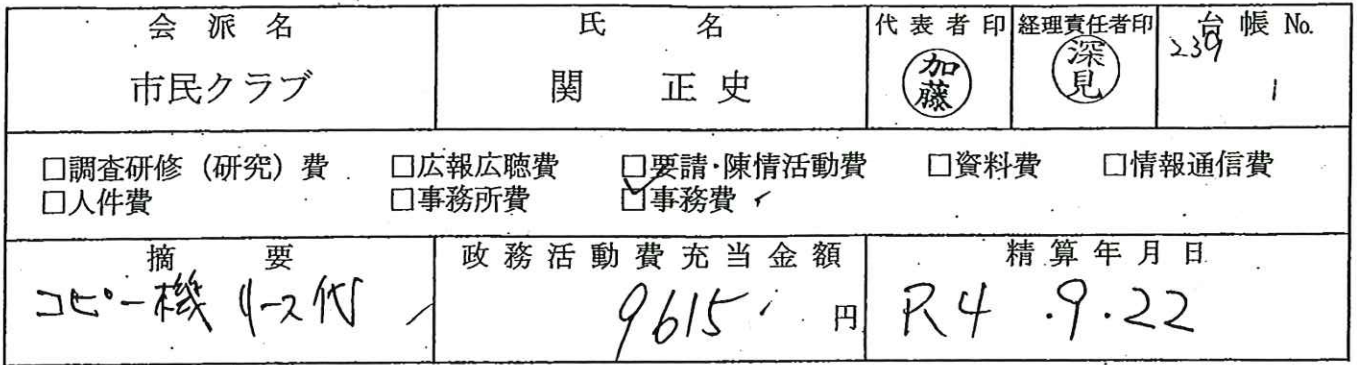 会派名 氏名 代表者印 経理責任者印 台帳No.
市民クラブ 関 正史 加藤 深見 239 1
□調査研修(研究)費 □広報広聴費 □要請・陳情活動費 □資料費 □情報通信費
□人件費 □事務所費 ☑事務費
摘要 政務活動費充当金額 精算年月日
コピー機リース代 9615円 R4.9.22